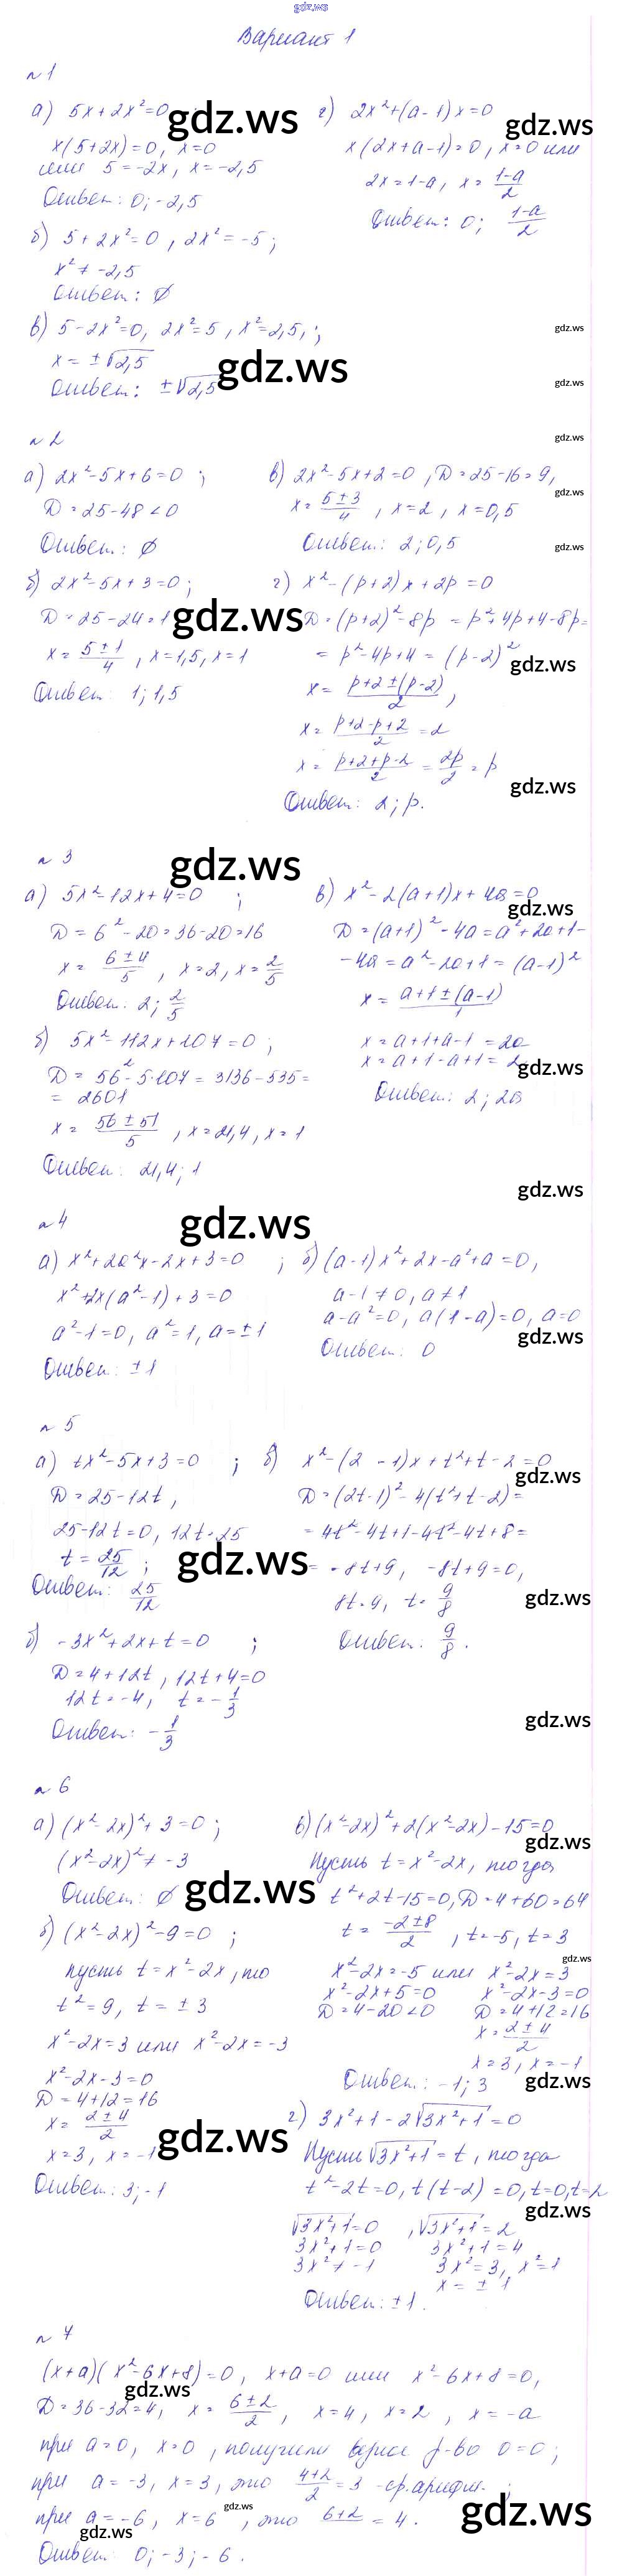 gdz.ws
Вариант 1
№1
а) 5x + 2x² = 0
x(5+2x) = 0, x = 0
или 5 = -2x, x = -2,5
Ответ: 0; -2,5
б) 5 + 2x² = 0, 2x² = -5;
x² ≠ -2,5
Ответ: ∅
в) 5 - 2x² = 0, 2x² = 5, x² = 2,5,;
x = ±√2,5
Ответ: ±√2,5
г) 2x² + (a-1)x = 0
x(2x+a-1) = 0, x = 0 или
2x = 1-a, x = (1-a)/2
Ответ: 0; (1-a)/2
№2
а) 2x² - 5x + 6 = 0;
D = 25 - 48 < 0
Ответ: ∅
б) 2x² - 5x + 3 = 0;
D = 25 - 24 = 1
x = (5±1)/4, x = 1,5, x = 1
Ответ: 1; 1,5
в) 2x² - 5x + 2 = 0, D = 25 - 16 = 9,
x = (5±3)/4, x = 2, x = 0,5
Ответ: 2; 0,5
г) x² - (p+2)x + 2p = 0
D = (p+2)² - 8p = p² + 4p + 4 - 8p =
= p² - 4p + 4 = (p-2)²
x = (p+2±(p-2))/2,
x = (p+2-p+2)/2 = 2
x = (p+2+p-2)/2 = 2p/2 = p
Ответ: 2; p.
№3
а) 5x² - 12x + 4 = 0;
D = 6² - 20 = 36 - 20 = 16
x = (6±4)/5, x = 2, x = 2/5
Ответ: 2; 2/5
б) 5x² - 112x + 107 = 0;
D = 56² - 5·107 = 3136 - 535 =
= 2601
x = (56±51)/5, x = 21,4, x = 1
Ответ: 21,4; 1
в) x² - 2(a+1)x + 4a = 0
D = (a+1)² - 4a = a² + 2a + 1 -
- 4a = a² - 2a + 1 = (a-1)²
x = (a+1±(a-1))/1
x = a+1+a-1 = 2a
x = a+1-a+1 = 2
Ответ: 2; 2a
№4
а) x² + 2a²x - 2x + 3 = 0;
x² + 2x(a²-1) + 3 = 0
a² - 1 = 0, a² = 1, a = ±1
Ответ: ±1
б) (a-1)x² + 2x - a² + a = 0,
a - 1 ≠ 0, a ≠ 1
a - a² = 0, a(1-a) = 0, a = 0
Ответ: 0
№5
а) tx² - 5x + 3 = 0;
D = 25 - 12t,
25 - 12t = 0, 12t = 25
t = 25/12;
Ответ: 25/12
б) -3x² + 2x + t = 0;
D = 4 + 12t, 12t + 4 = 0
12t = -4, t = -1/3
Ответ: -1/3
в) x² - (2 - 1)x + t² + t - 2 = 0
D = (2t-1)² - 4(t²+t-2) =
= 4t² - 4t + 1 - 4t² - 4t + 8 =
= -8t + 9, -8t + 9 = 0,
8t = 9, t = 9/8
Ответ: 9/8.
№6
а) (x² - 2x)² + 3 = 0;
(x² - 2x)² ≠ -3
Ответ: ∅
б) (x² - 2x)² - 9 = 0;
пусть t = x² - 2x, то
t² = 9, t = ±3
x² - 2x = 3 или x² - 2x = -3
x² - 2x - 3 = 0
D = 4 + 12 = 16
x = (2±4)/2
x = 3, x = -1
Ответ: 3; -1
в) (x² - 2x)² + 2(x² - 2x) - 15 = 0
Пусть t = x² - 2x, тогда
t² + 2t - 15 = 0, D = 4 + 60 = 64
t = (-2±8)/2, t = -5, t = 3
x² - 2x = -5 или x² - 2x = 3
x² - 2x + 5 = 0 x² - 2x - 3 = 0
D = 4 - 20 < 0 D = 4 + 12 = 16
x = (2±4)/2
x = 3, x = -1
Ответ: -1; 3
г) 3x² + 1 - 2√(3x²+1) = 0
Пусть √(3x²+1) = t, тогда
t² - 2t = 0, t(t-2) = 0, t = 0, t = 2
√(3x²+1) = 0, √(3x²+1) = 2
3x² + 1 = 0 3x² + 1 = 4
3x² ≠ -1 3x² = 3, x² = 1
x = ±1
Ответ: ±1.
№7
(x+a)(x² - 6x + 8) = 0, x + a = 0 или x² - 6x + 8 = 0,
D = 36 - 32 = 4, x = (6±2)/2, x = 4, x = 2, x = -a
при a = 0, x = 0, получили верное р-во 0 = 0;
при a = -3, x = 3, это (4+2)/2 = 3 - ср. арифм.;
при a = -6, x = 6, это (6+2)/ = 4.
Ответ: 0; -3; -6.